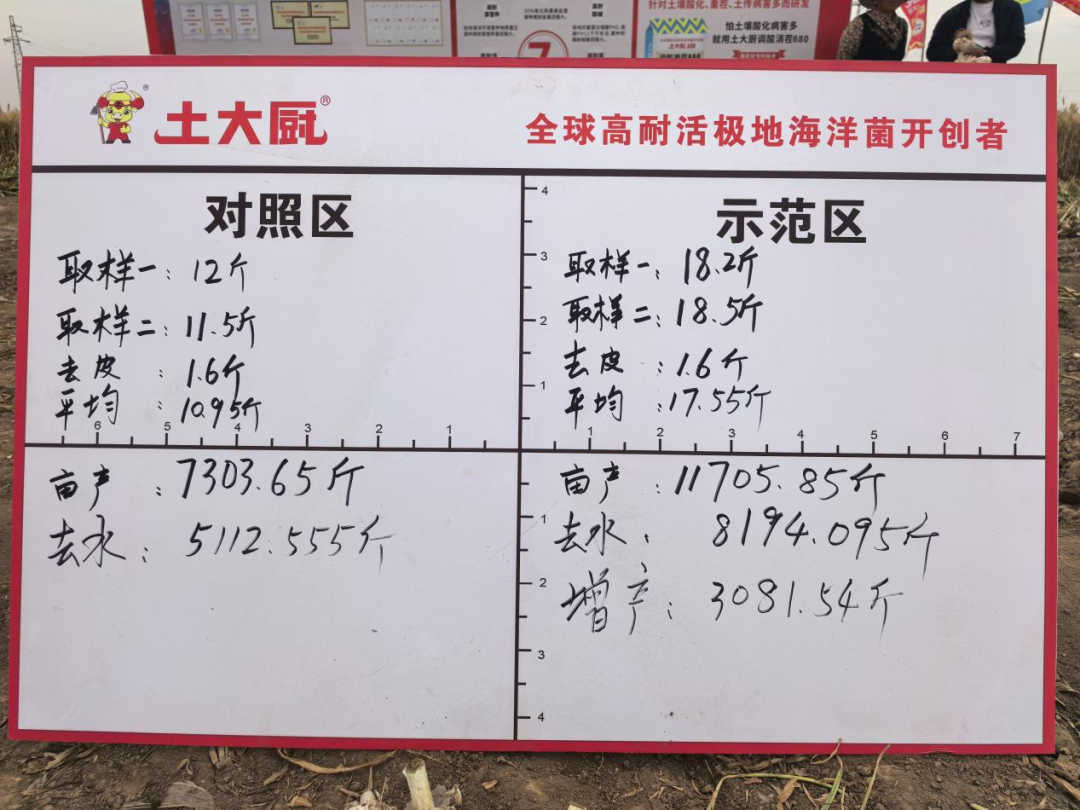 针对土壤酸化、重茬、土传病害多而研发
怕土壤酸化病害多
就用土大厨调酸消茬680
土大厨
7
土大厨®
全球高耐活极地海洋菌开创者
对照区
取样一：12斤
取样二：11.5斤
去皮：1.6斤
平均：10.95斤
6 5 4 3 2 1
亩产：7303.65斤
去水：5112.555斤
4
3
2
1
示范区
取样一：18.2斤
取样二：18.5斤
去皮：1.6斤
平均：17.55斤
1 2 3 4 5 6 7
亩产：11705.85斤
去水：8194.095斤
增产：3081.54斤
1
2
3
4